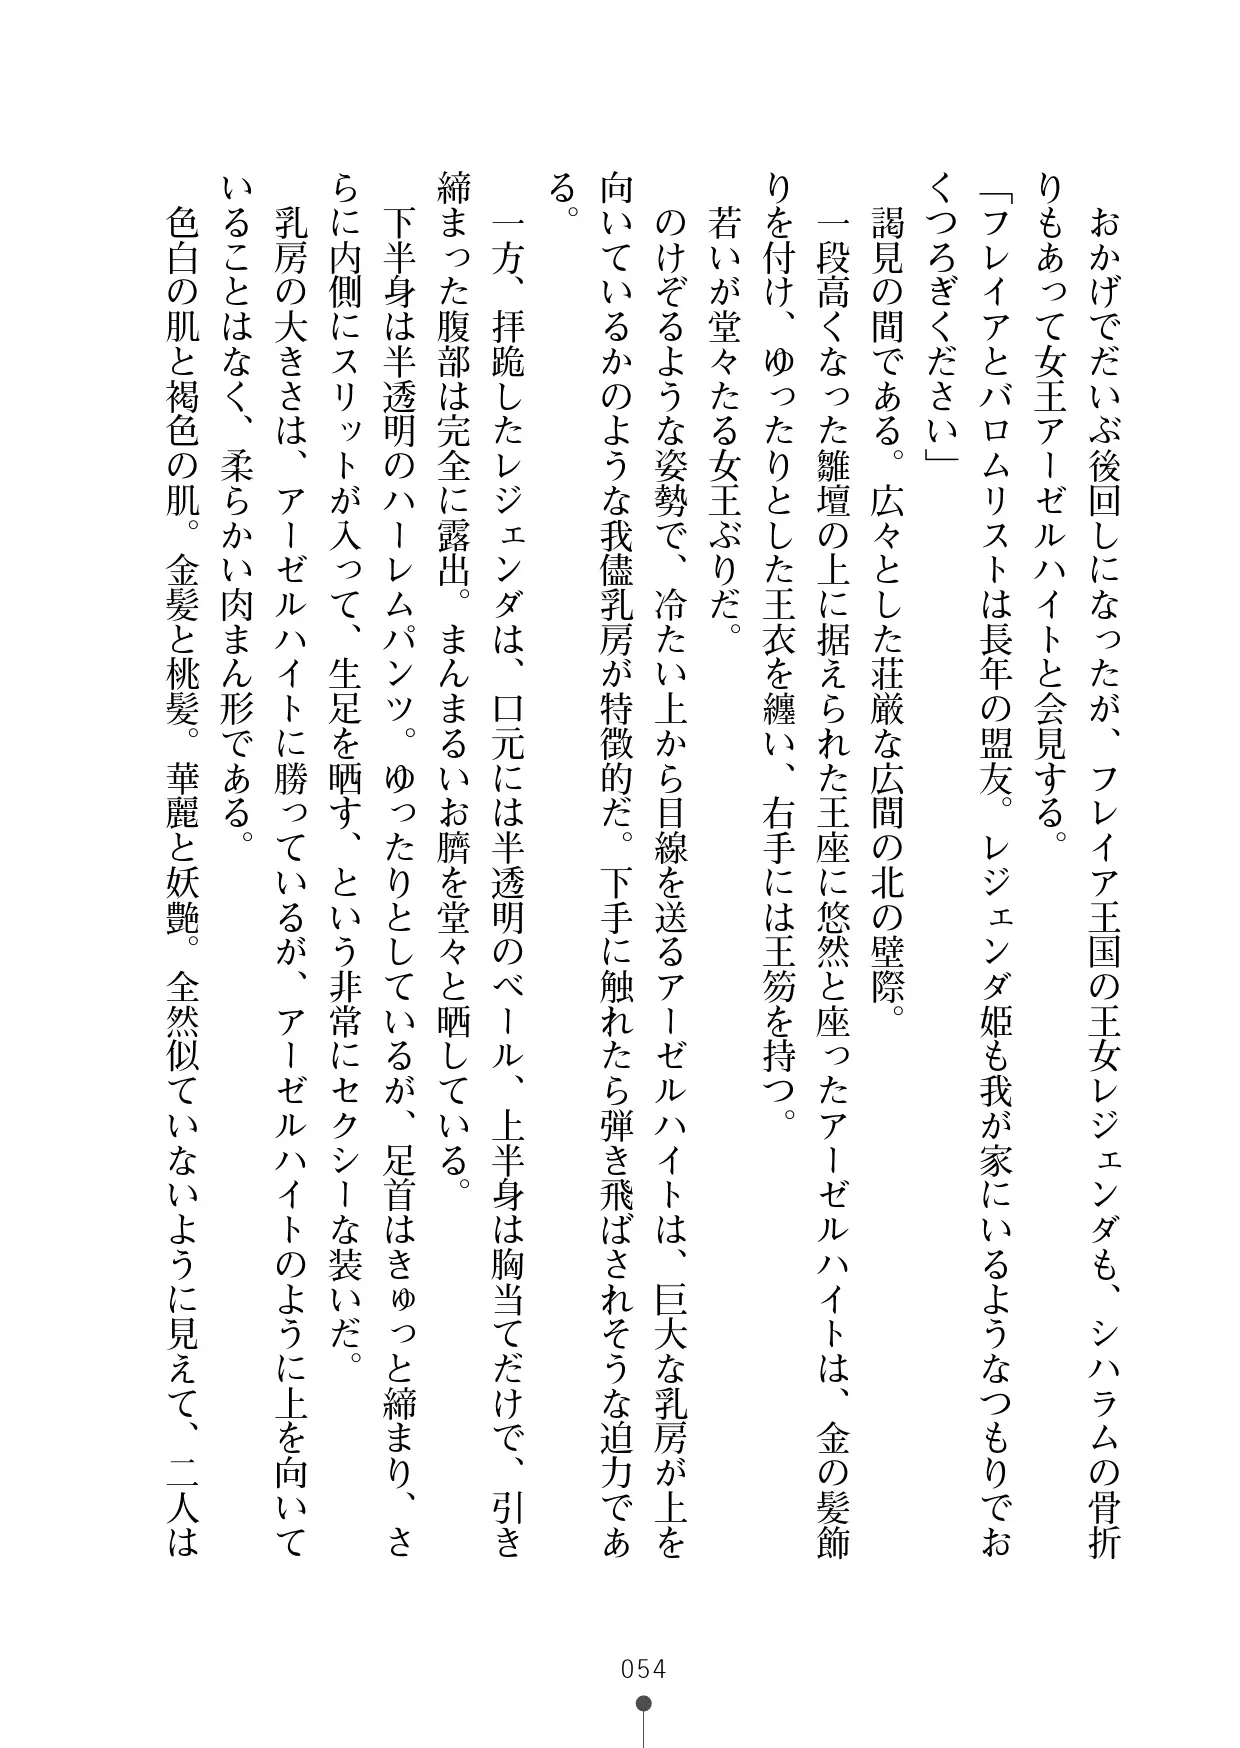 おかげでだいぶ後回しになったが、フレイア王国の王女レジェンダも、シハラムの骨折
りもあって女王アーゼルハイトと会見する。
「フレイアとバロムリストは長年の盟友。レジェンダ姫も我が家にいるようなつもりでお
くつろぎください」
謁見の間である。広々とした荘厳な広間の北の壁際。
一段高くなった雛壇の上に据えられた王座に悠然と座ったアーゼルハイトは、金の髪飾
りを付け、ゆったりとした王衣を纏い、右手には王笏を持つ。
若いが堂々たる女王ぶりだ。
のけぞるような姿勢で、冷たい上から目線を送るアーゼルハイトは、巨大な乳房が上を
向いているかのような我儘乳房が特徴的だ。下手に触れたら弾き飛ばされそうな迫力であ
る。
一方、拝跪したレジェンダは、口元には半透明のベール、上半身は胸当てだけで、引き
締まった腹部は完全に露出。まんまるいお臍を堂々と晒している。
下半身は半透明のハーレムパンツ。ゆったりとしているが、足首はきゅっと締まり、さ
らに内側にスリットが入って、生足を晒す、という非常にセクシーな装いだ。
乳房の大きさは、アーゼルハイトに勝っているが、アーゼルハイトのように上を向いて
いることはなく、柔らかい肉まん形である。
色白の肌と褐色の肌。金髪と桃髪。華麗と妖艶。全然似ていないように見えて、二人は
054